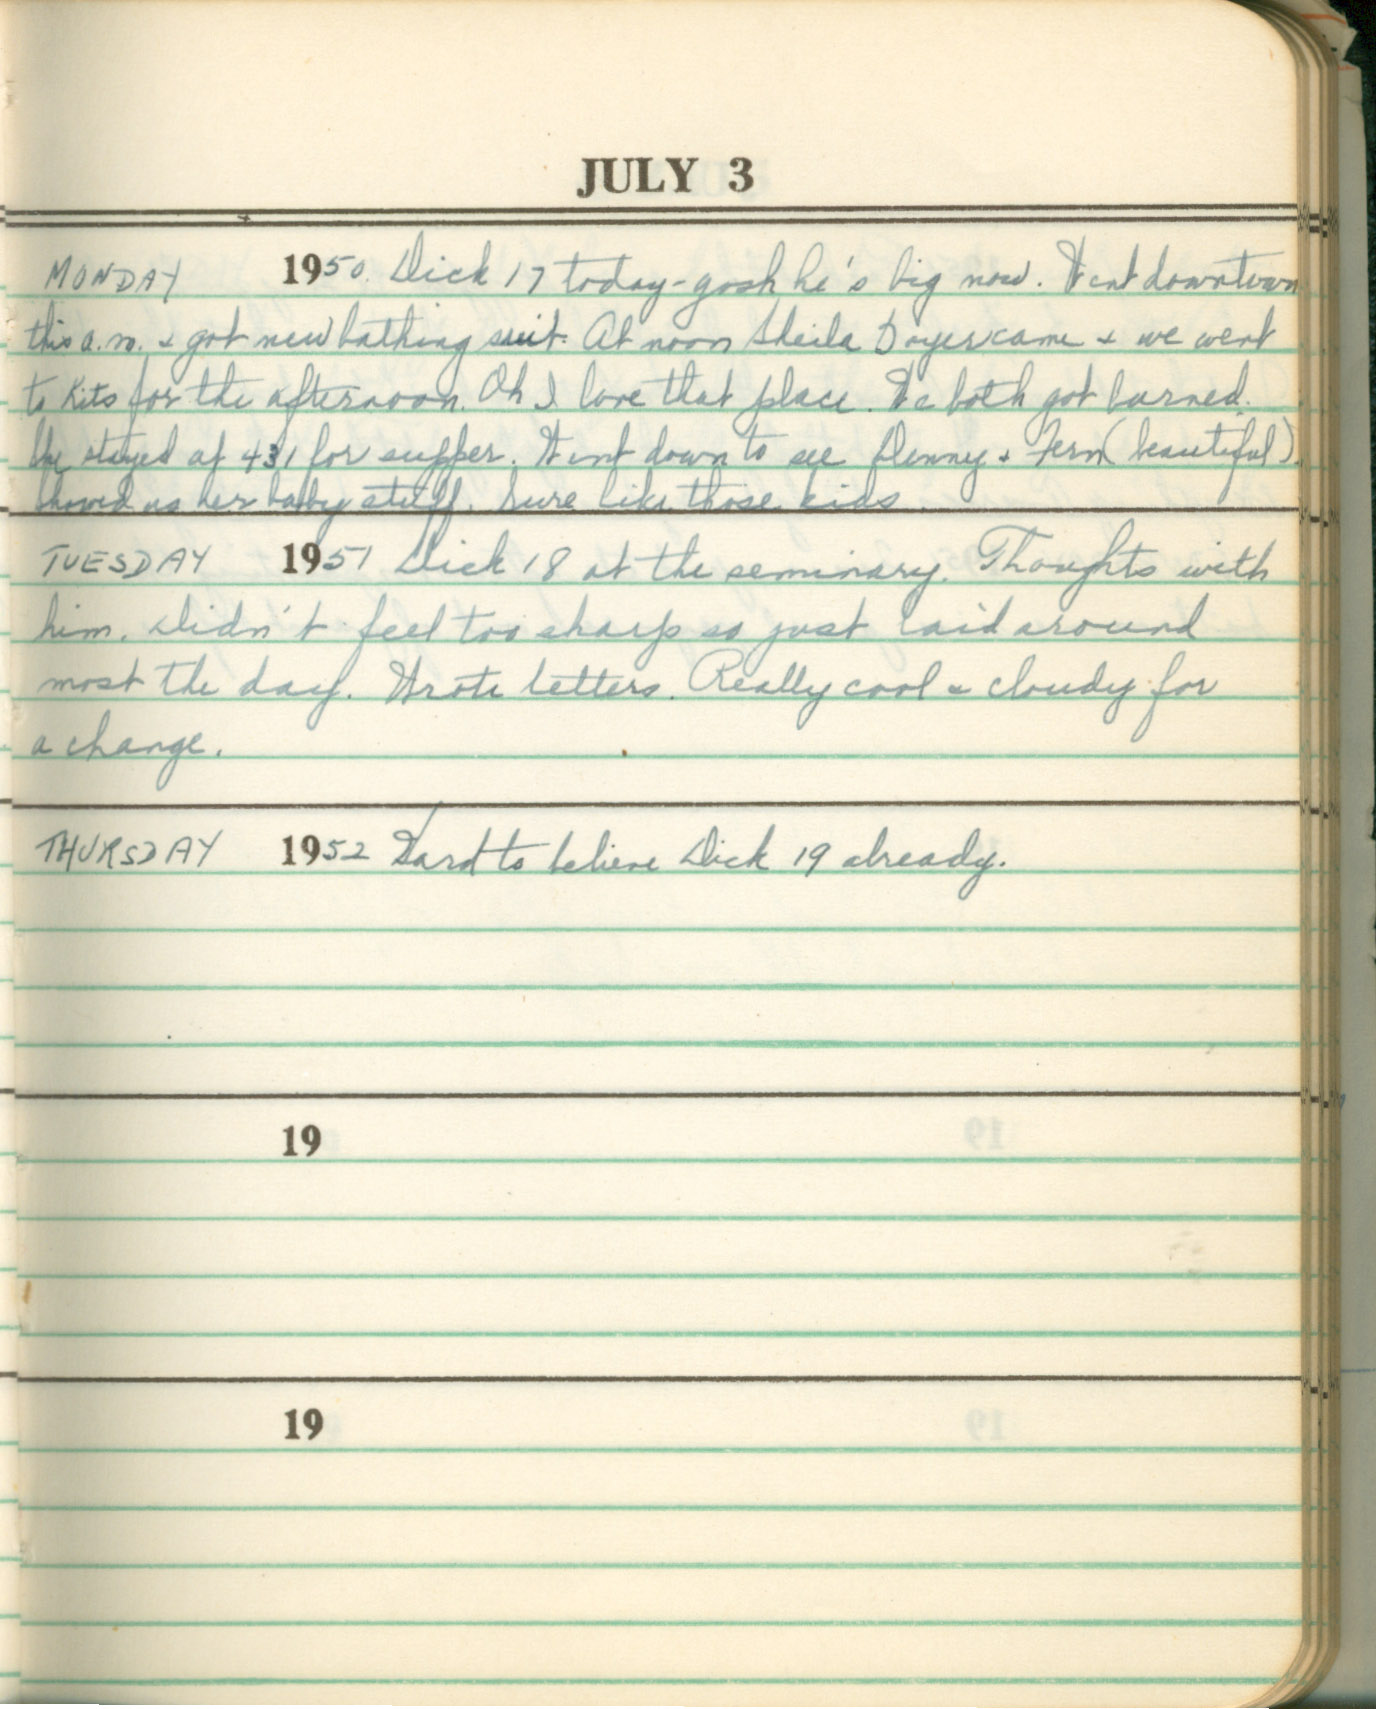 JULY 3
MONDAY 1950. Dick 17 today - gosh he's big now. Went downtown
this a.m. + got new bathing suit. At noon Sheila Dwyer came + we went
to Kits for the afternoon. Oh I love that place. We both got burned.
She stayed at 431 for supper. Went down to see Denny + Fern (beautiful)
showed us her baby stuff. Sure like those kids.
TUESDAY 1951 Dick 18 at the seminary. Thoughts with
him. Didn't feel too sharp so just laid around
most the day. Wrote letters. Really cool + cloudy for
a change.
THURSDAY 1952 Hard to believe Dick 19 already.
19
19